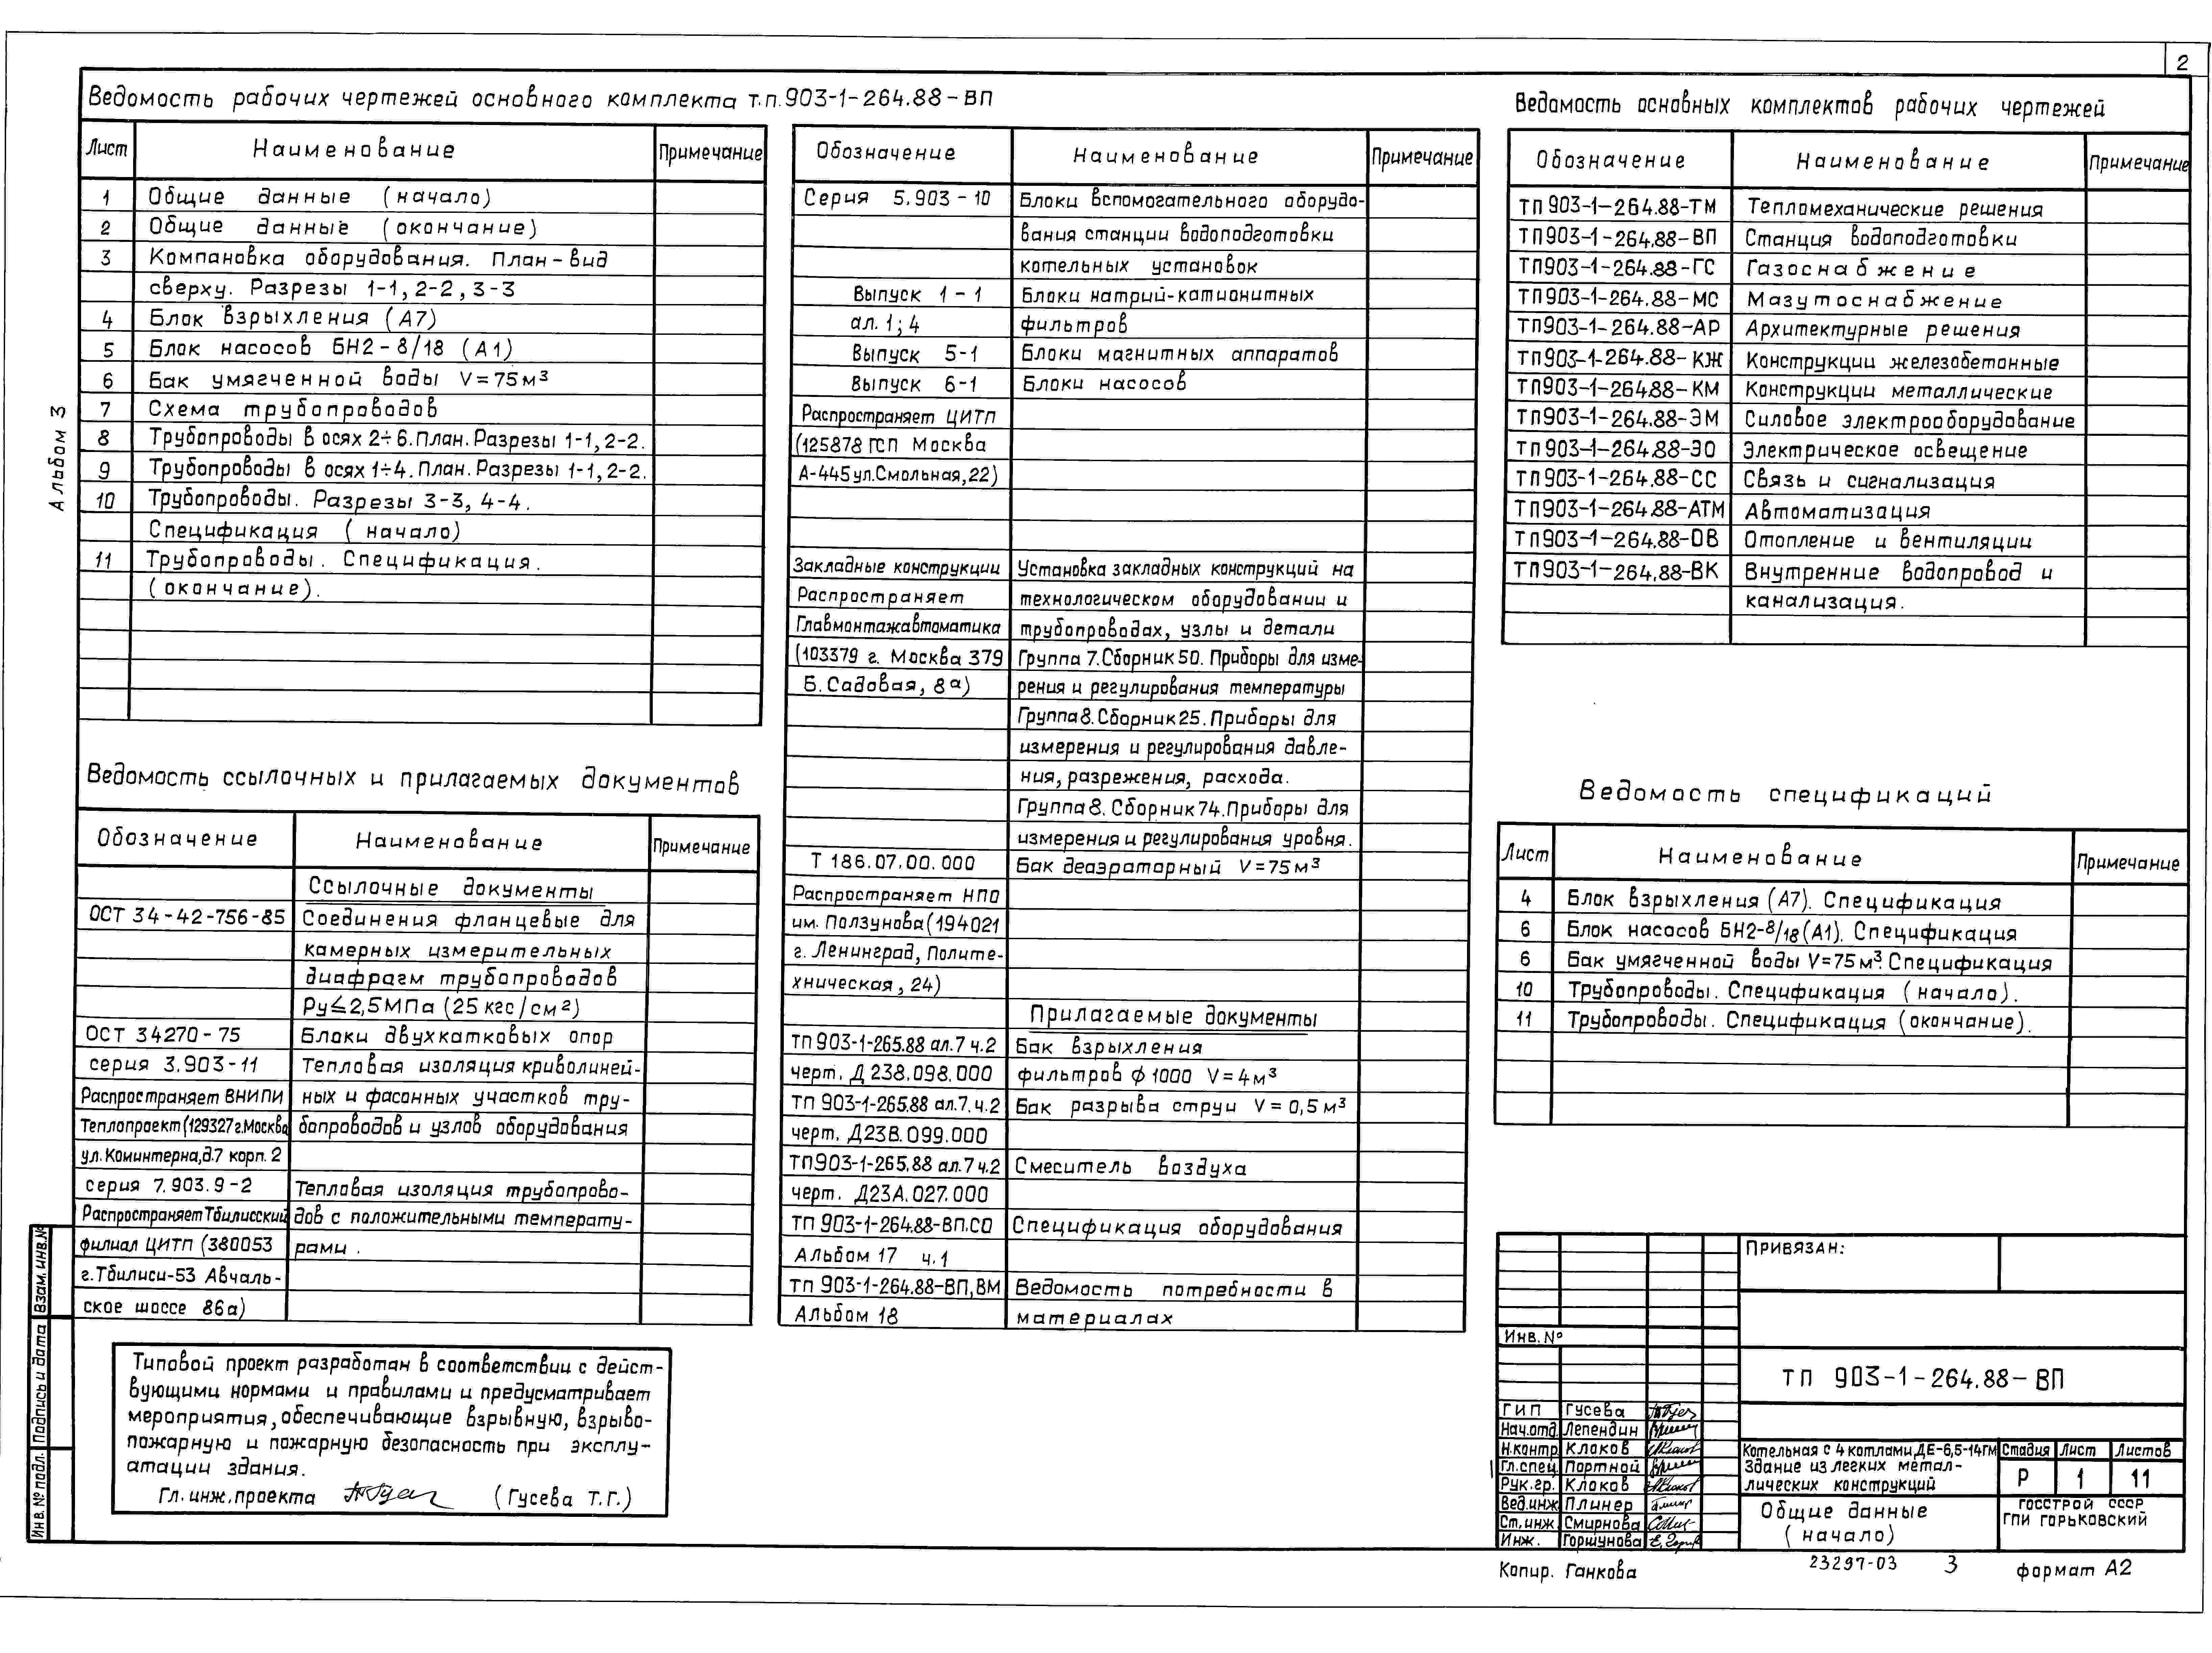 2
Альбом 3
Ведомость рабочих чертежей основного комплекта т.п.903-1-264.88-ВП
Лист Наименование Примечание
1 Общие данные (начало)
2 Общие данные (окончание)
3 Компановка оборудования. План-вид
сверху. Разрезы 1-1, 2-2, 3-3
4 Блок взрыхления (А7)
5 Блок насосов БН2-8/18 (А1)
6 Бак умягченной воды V=75м³
7 Схема трубопроводов
8 Трубопроводы в осях 2÷6. План. Разрезы 1-1, 2-2.
9 Трубопроводы в осях 1÷4. План. Разрезы 1-1, 2-2.
10 Трубопроводы. Разрезы 3-3, 4-4.
Спецификация (начало)
11 Трубопроводы. Спецификация.
(окончание).
Ведомость ссылочных и прилагаемых документов
Обозначение Наименование Примечание
Ссылочные документы
ОСТ 34-42-756-85 Соединения фланцевые для
камерных измерительных
диафрагм трубопроводов
Ру≤2,5МПа (25 кгс/см²)
ОСТ 34270-75 Блоки двухкатковых опор
серия 3.903-11 Тепловая изоляция криволиней-
Распространяет ВНИПИ ных и фасонных участков тру-
Теплопроект (129327 г.Москва бопроводов и узлов оборудования
ул. Коминтерна, д.7 корп. 2
серия 7.903.9-2 Тепловая изоляция трубопрово-
Распространяет Тбилисский дов с положительными температу-
филиал ЦИТП (380053 рами.
г.Тбилиси-53 Авчаль-
ское шоссе 86а)
Типовой проект разработан в соответствии с дейст-
вующими нормами и правилами и предусматривает
мероприятия, обеспечивающие взрывную, взрыво-
пожарную и пожарную безопасность при эксплу-
атации здания.
Гл. инж. проекта (Гусева Т.Г.)
Взам. инв.№
Подпись и дата
Инв. № подл.
Обозначение Наименование Примечание
Серия 5.903-10 Блоки вспомогательного оборудо-
вания станции водоподготовки
котельных установок
Выпуск 1-1 Блоки натрий-катионитных
ал. 1; 4 фильтров
Выпуск 5-1 Блоки магнитных аппаратов
Выпуск 6-1 Блоки насосов
Распространяет ЦИТП
(125878 ГСП Москва
А-445 ул. Смольная, 22)
Закладные конструкции Установка закладных конструкций на
Распространяет технологическом оборудовании и
Главмонтажавтоматика трубопроводах, узлы и детали
(103379 г. Москва 379 Группа 7. Сборник 50. Приборы для изме-
Б. Садовая, 8а) рения и регулирования температуры
Группа 8. Сборник 25. Приборы для
измерения и регулирования давле-
ния, разрежения, расхода.
Группа 8. Сборник 74. Приборы для
измерения и регулирования уровня.
Т 186.07.00.000 Бак деаэраторный V=75м³
Распространяет НПО
им. Ползунова (194021
г. Ленинград, Полите-
хническая, 24)
Прилагаемые документы
ТП 903-1-265.88 ал.7 ч.2 Бак взрыхления
черт. Д 238.098.000 фильтров ф 1000 V=4м³
ТП 903-1-265.88 ал.7. ч.2 Бак разрыва струи V=0,5м³
черт. Д23В.099.000
ТП903-1-265.88 ал.7 ч.2 Смеситель воздуха
черт. Д23А.027.000
ТП 903-1-264.88-ВП.СО Спецификация оборудования
Альбом 17 ч.1
тп 903-1-264.88-ВП,ВМ Ведомость потребности в
Альбом 18 материалах
Ведомость основных комплектов рабочих чертежей
Обозначение Наименование Примечание
ТП 903-1-264.88-ТМ Тепломеханические решения
ТП903-1-264.88-ВП Станция водоподготовки
ТП903-1-264.88-ГС Газоснабжение
ТП903-1-264.88-МС Мазутоснабжение
ТП903-1-264.88-АР Архитектурные решения
ТП903-1-264.88-КЖ Конструкции железобетонные
ТП903-1-264.88-КМ Конструкции металлические
ТП903-1-264.88-ЭМ Силовое электрооборудование
ТП903-1-264.88-ЭО Электрическое освещение
ТП903-1-264.88-СС Связь и сигнализация
ТП903-1-264.88-АТМ Автоматизация
ТП903-1-264.88-ОВ Отопление и вентиляции
ТП903-1-264.88-ВК Внутренние водопровод и
канализация.
Ведомость спецификаций
Лист Наименование Примечание
4 Блок взрыхления (А7). Спецификация
6 Блок насосов БН2-8/18 (А1). Спецификация
6 Бак умягченной воды V=75м³. Спецификация
10 Трубопроводы. Спецификация (начало).
11 Трубопроводы. Спецификация (окончание).
Привязан:
Инв. №
ТП 903-1-264.88-ВП
ГИП Гусева
Нач.отд. Лепендин
Н.контр. Клоков
Гл.спец. Портной
Рук.гр. Клоков
Вед.инж. Плинер
Ст.инж. Смирнова
Инж. Горшунова
Котельная с 4 котлами ДЕ-6,5-14ГМ
Здание из легких метал-
лических конструкций
Стадия Лист Листов
Р 1 11
Общие данные
(начало)
ГОССТРОЙ СССР
ГПИ ГОРЬКОВСКИЙ
Копир. Ганкова
23297-03 3 формат А2